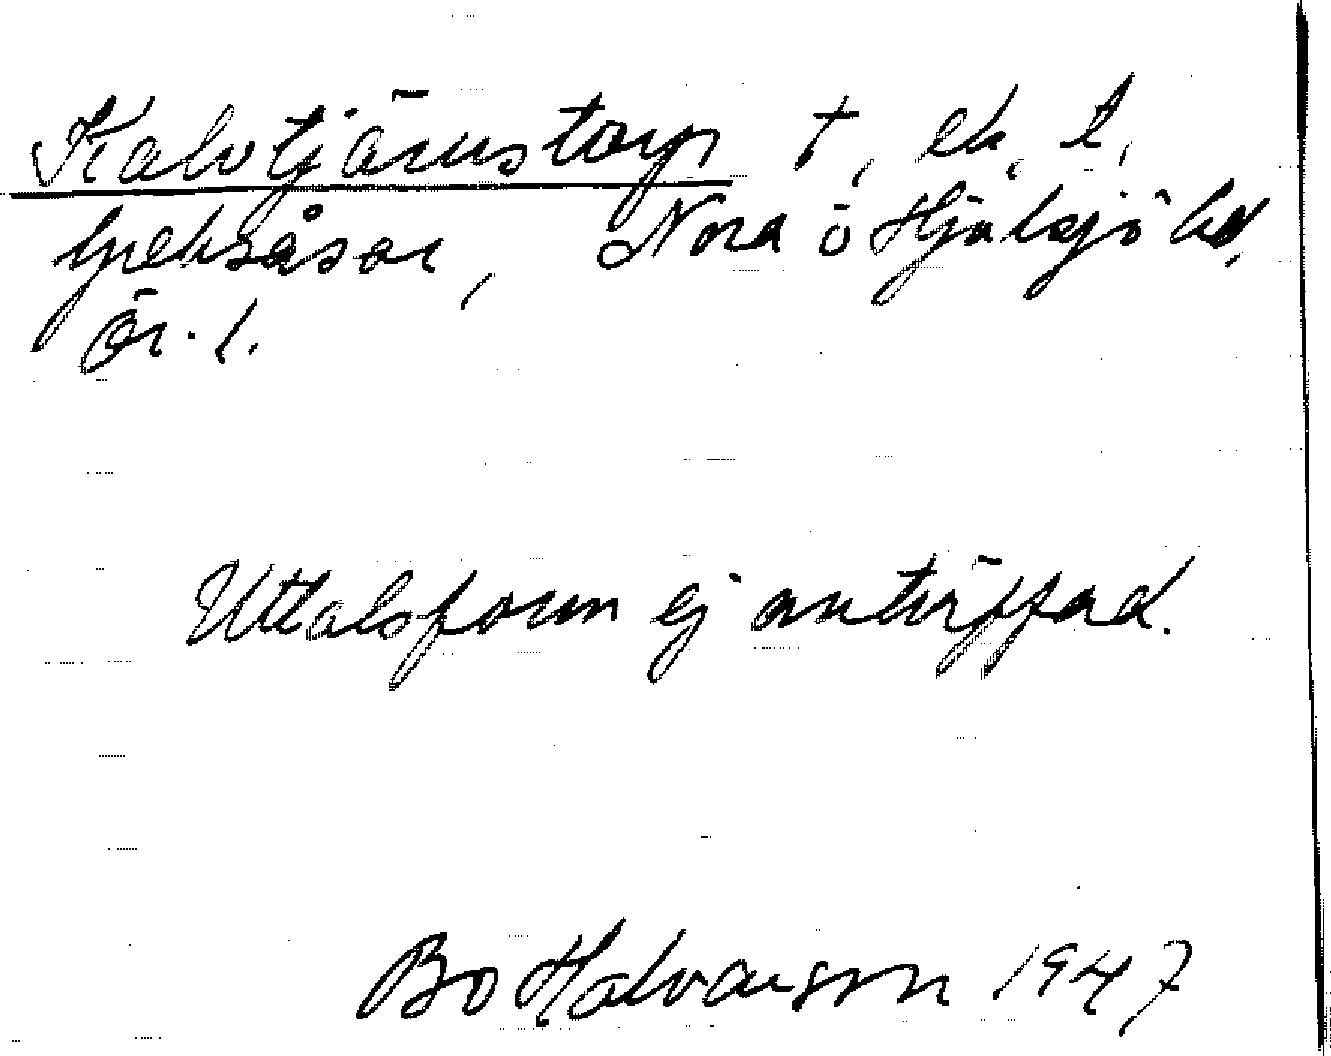 Kalvtjärnstorp t, ek. l,
Greksåsar, Nora o Hjulsjö bd,
Ör. l.
Uttalsform ej anträffad.
Bo Halvarson 1947